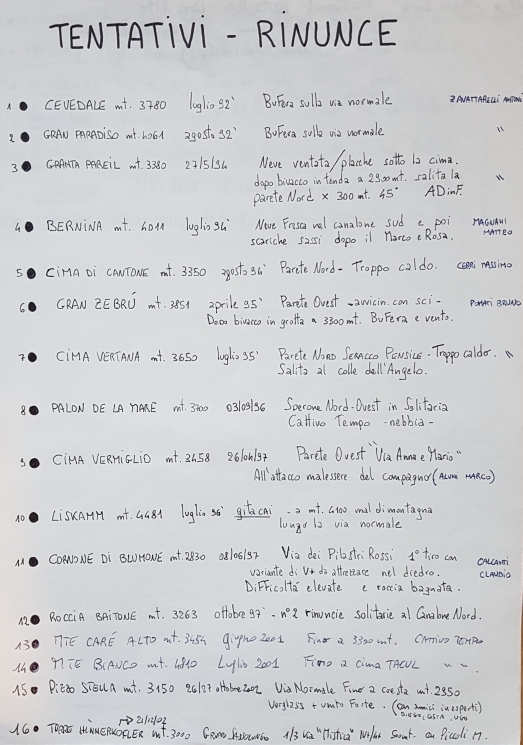 TENTATIVI - RINUNCE
1 ● CEVEDALE mt. 3780 luglio 92' BuFera sulla via normale ZANATTARELLI ANTONIO
2 ● GRAN PARADISO mt. 4061 agosto 92' BuFera su via normale "
3 ● GRANTA PAREIL mt. 3380 27/5/94 Neve ventata/placche sotto la cima.
dopo bivacco in tenda a 2900 mt. salita la "
parete Nord x 300 mt. 45° AD inF.
4 ● BERNINA mt. 4011 luglio 94' Neve Fresca nel canalone sud e poi MAGNANI
scariche sassi dopo il Marco e Rosa. MATTEO
5 ● CIMA DI CANTONE mt. 3350 agosto 94' Parete Nord - Troppo caldo. CERRI MASSIMO
6 ● GRAN ZEBRÚ mt. 3851 aprile 95' Parete Ovest - avvicin. con sci - PUMARI BRUNO
Dopo bivacco in grotta a 3300 mt. BuFera e vento.
7 ● CIMA VERTANA mt. 3650 luglio 95' Parete NORD SERACCO PENSILE - Troppo caldo. "
Salita al colle dell'Angelo.
8 ● PALON DE LA MARE mt. 3700 03/09/96 Sperone Nord-Ovest in Solitaria
Cattivo Tempo - nebbia -
9 ● CIMA VERMIGLIO mt. 3458 26/04/97 Parete Ovest "Via Anna e Mario"
All'attacco malessere del compagno (MARCO)
10 ● LISKAMM mt. 4481 luglio 96' gita CAI - a mt. 4100 mal di montagna
lungo la via normale
11 ● CORNONE DI BLUMONE mt. 2830 08/06/97 Via dei Pilastri Rossi 1° tiro con CALCANTI
variante di V+ da attrezzare nel diedro. CLAUDIO
DiFFicoltá elevate e roccia bagnata.
12 ● ROCCIA BAITONE mt. 3263 ottobre 97' - n°2 rinuncie solitarie al Canalone Nord.
13 ● MTE CARÉ ALTO mt. 3454 giugno 2001 Fino a 3300 mt. CATTIVO TEMPO
14 ● MTE BIANCO mt. 4810 Luglio 2001 Fino a cima TACUL " "
15 ● Pizzo STELLA mt. 3150 26/27 ottobre 2002 Via Normale Fino a cresta mt. 2850
Verglass + vento Forte. (con amici inesperti)
DIEGO, UGO
21/12/02
16 ● TORRE mt. 3000 GRUPPO 1/3 via "Mistica"